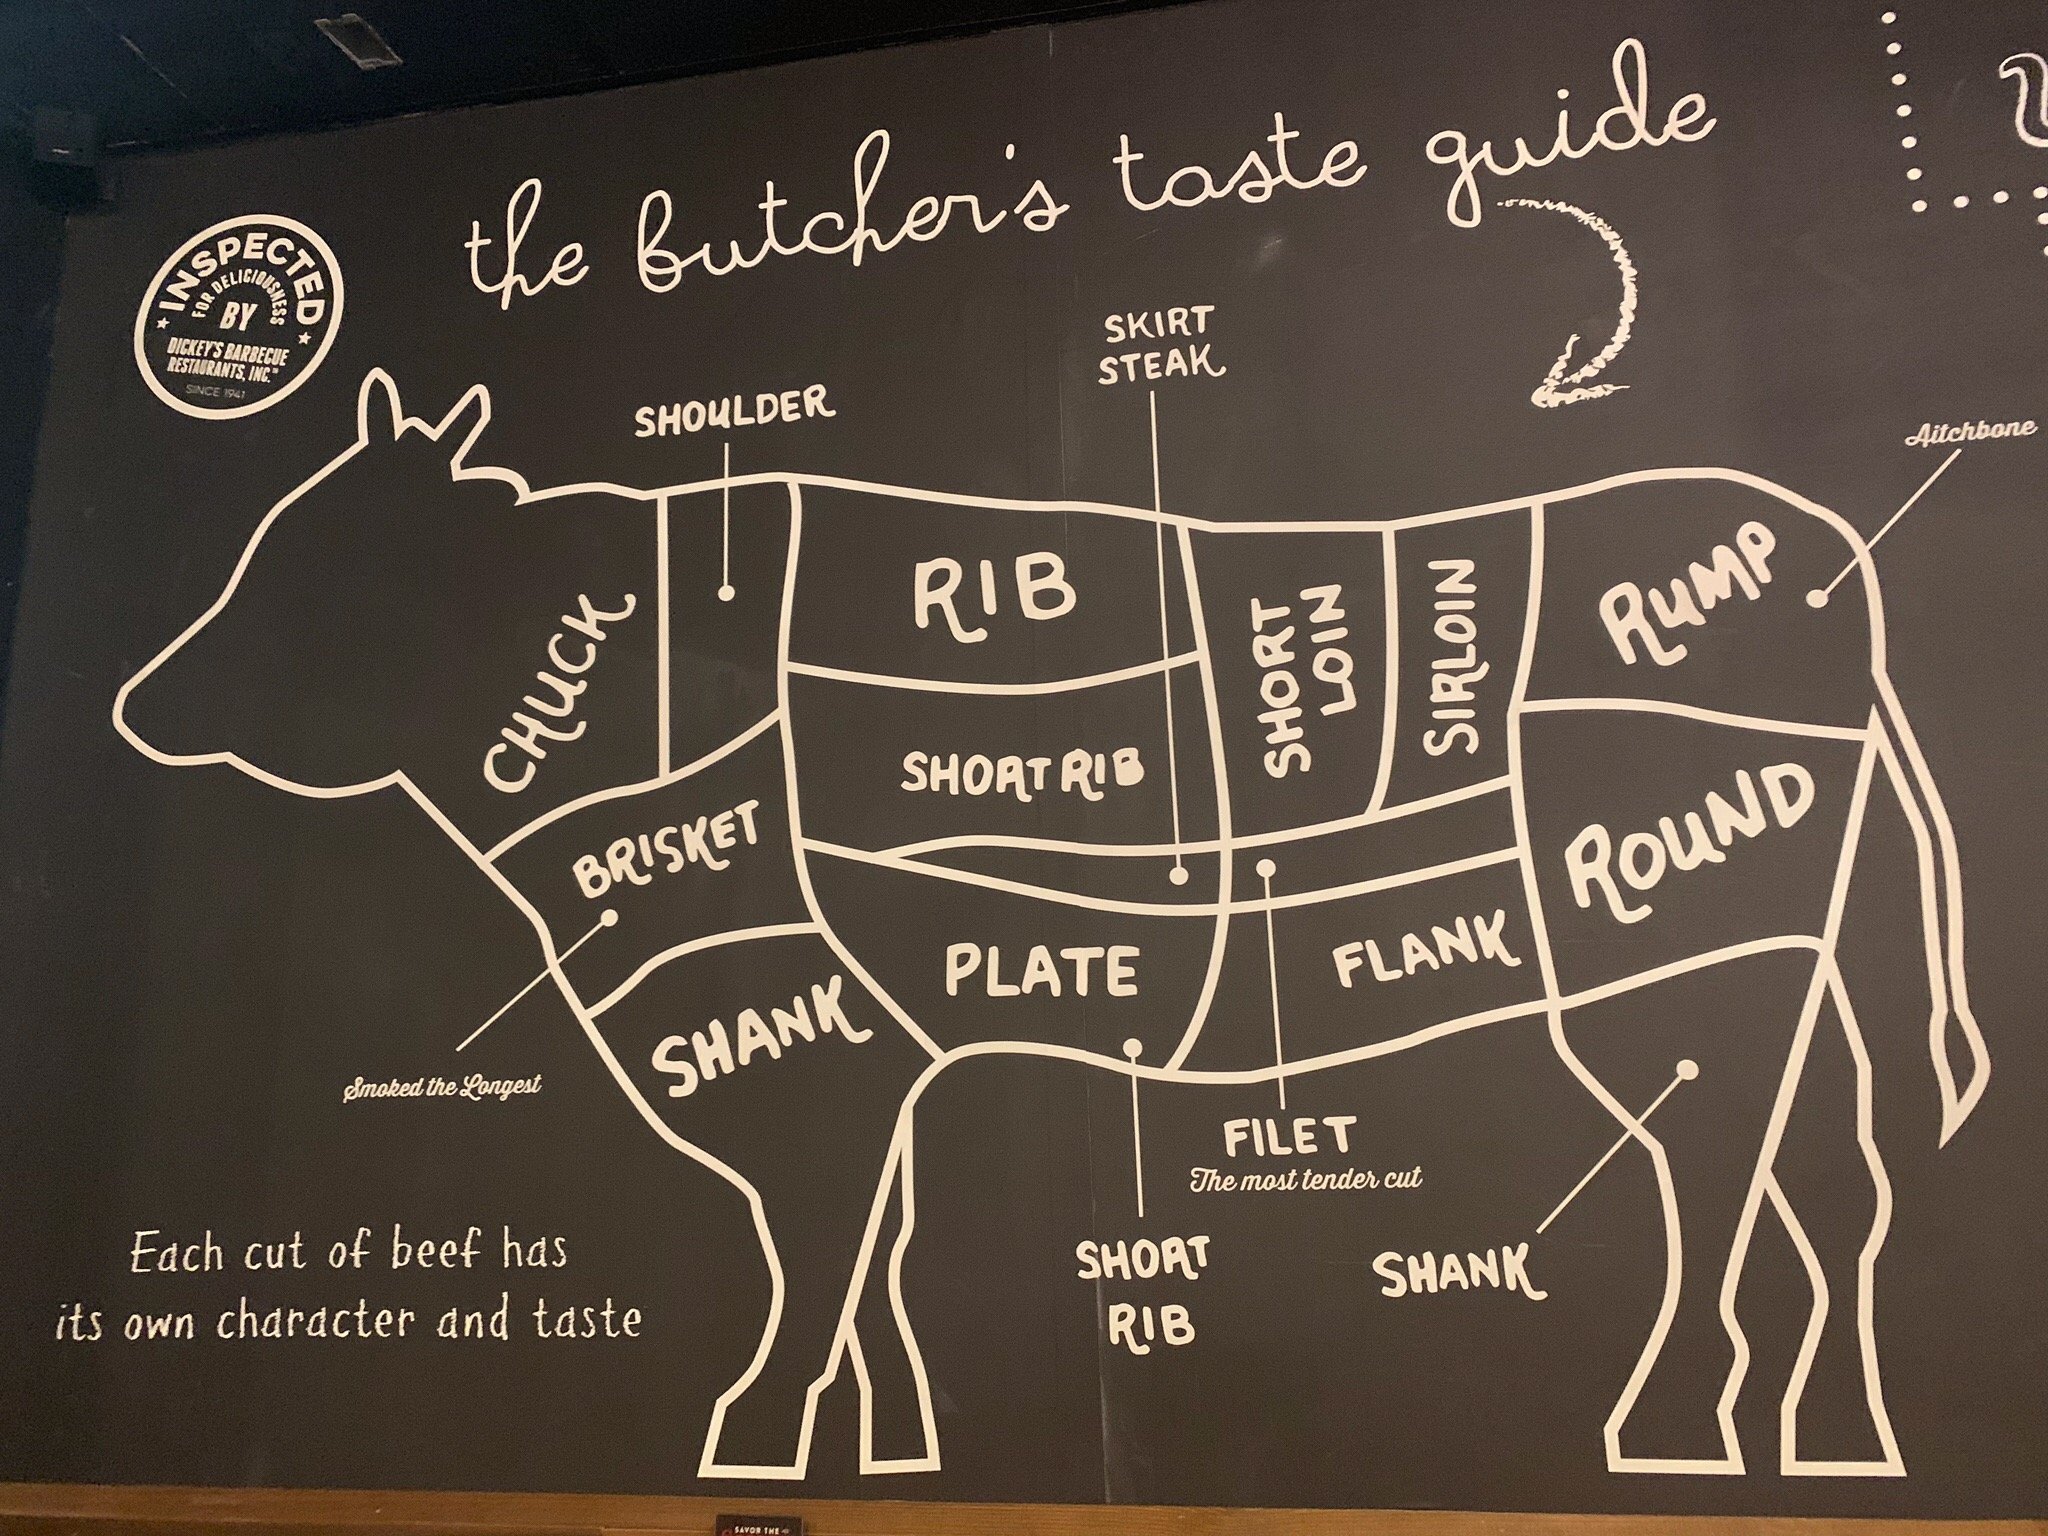 the butcher's taste guide
INSPECTED
FOR DELICIOUSNESS
BY
DICKEY'S BARBECUE
RESTAURANTS, INC.
SINCE 1941
SKIRT
STEAK
SHOULDER
Aitchbone
CHUCK
RIB
SHORT
LOIN
SIRLOIN
RUMP
SHORT RIB
BRISKET
ROUND
PLATE
FLANK
SHANK
Smoked the Longest
FILET
The most tender cut
SHORT
RIB
SHANK
Each cut of beef has
its own character and taste
SAVOR THE